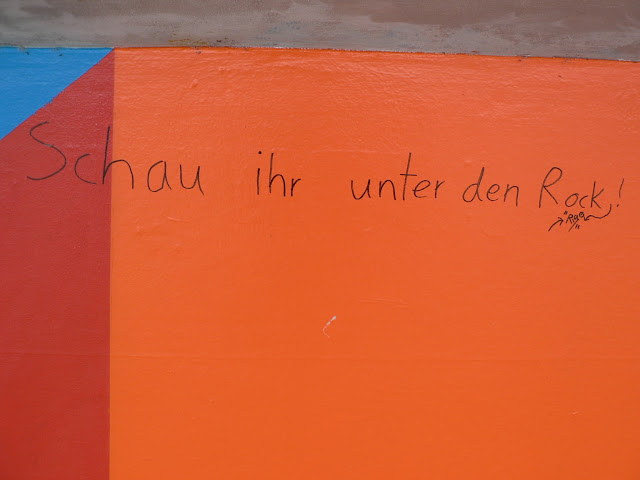 Schau ihr unter den Rock!